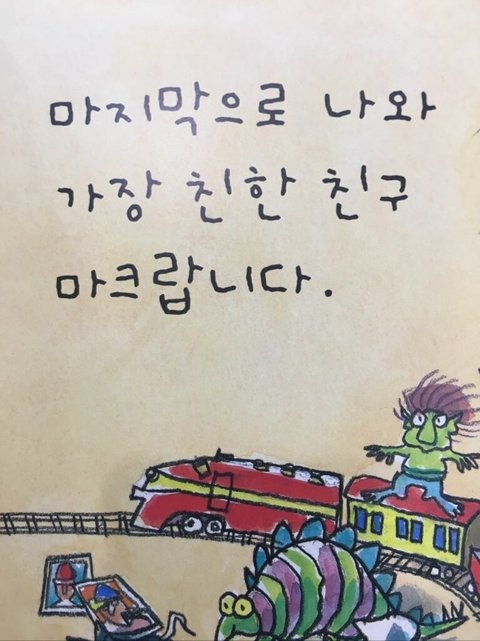 마지막으로 나와
가장 친한 친구
마크랍니다.